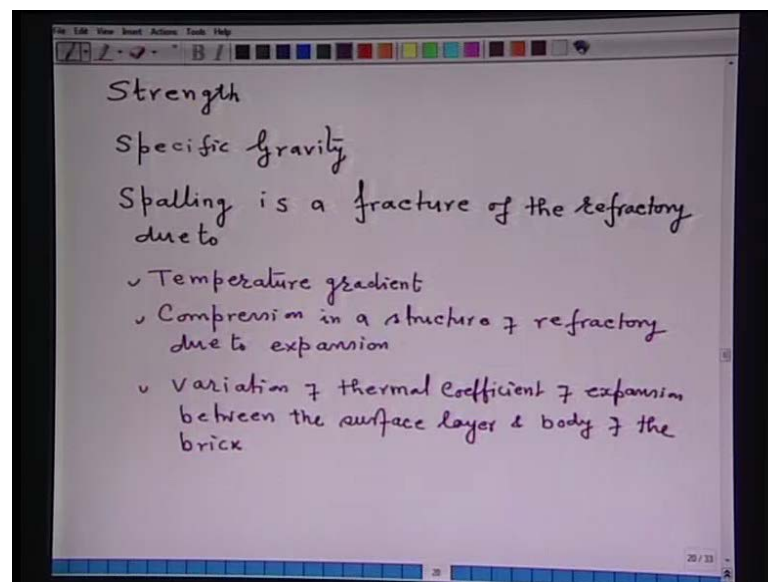 File Edit View Insert Actions Tools Help
B I
Strength
Specific Gravity
Spalling is a fracture of the refractory
due to
Temperature gradient
Compression in a structure of refractory
due to expansion
Variation of thermal coefficient of expansion
between the surface layer & body of the
brick
20 / 33
20